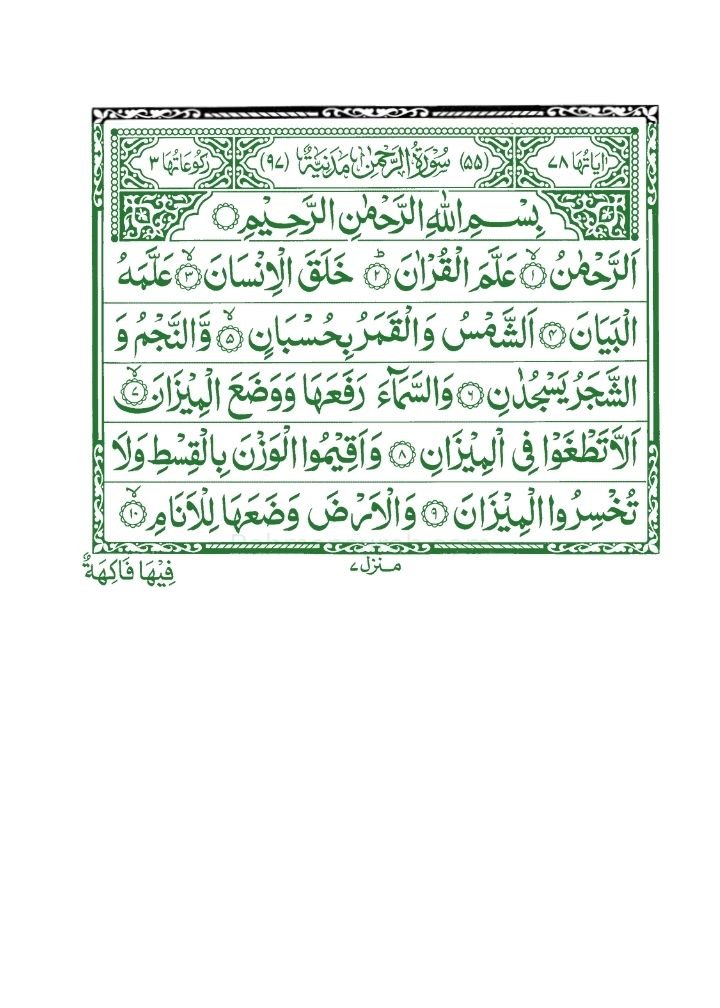 اٰيَاتُهَا ٧٨ (٥٥) سُوْرَةُ الرَّحْمٰنِ مَدَنِيَّةٌ (٩٧) رُكُوْعَاتُهَا ٣
بِسْمِ اللّٰهِ الرَّحْمٰنِ الرَّحِيْمِ
اَلرَّحْمٰنُ ۙ﴿١﴾ عَلَّمَ الْقُرْاٰنَ ؕ﴿٢﴾ خَلَقَ الْاِنْسَانَ ۙ﴿٣﴾ عَلَّمَهُ
الْبَيَانَ ﴿٤﴾ اَلشَّمْسُ وَالْقَمَرُ بِحُسْبَانٍ ۙ﴿٥﴾ وَّالنَّجْمُ وَ
الشَّجَرُ يَسْجُدٰنِ ﴿٦﴾ وَالسَّمَآءَ رَفَعَهَا وَوَضَعَ الْمِيْزَانَ ۙ﴿٧﴾
اَلَّا تَطْغَوْا فِى الْمِيْزَانِ ﴿٨﴾ وَاَقِيْمُوا الْوَزْنَ بِالْقِسْطِ وَلَا
تُخْسِرُوا الْمِيْزَانَ ﴿٩﴾ وَالْاَرْضَ وَضَعَهَا لِلْاَنَامِ ۙ﴿١٠﴾
منزل ٧
فِيْهَا فَاكِهَةٌ